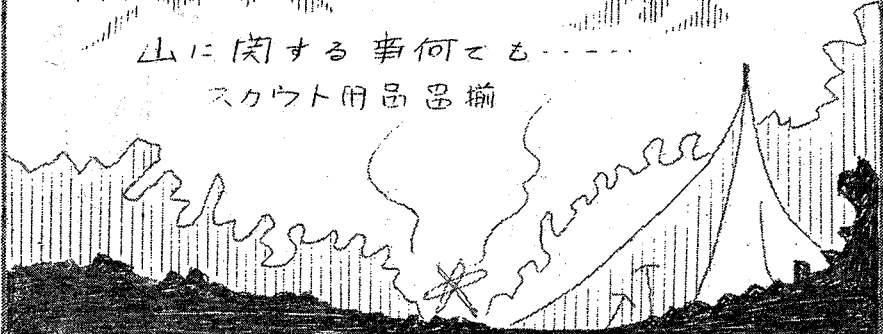 山に関する事何でも‥‥‥
スカウト用品品揃